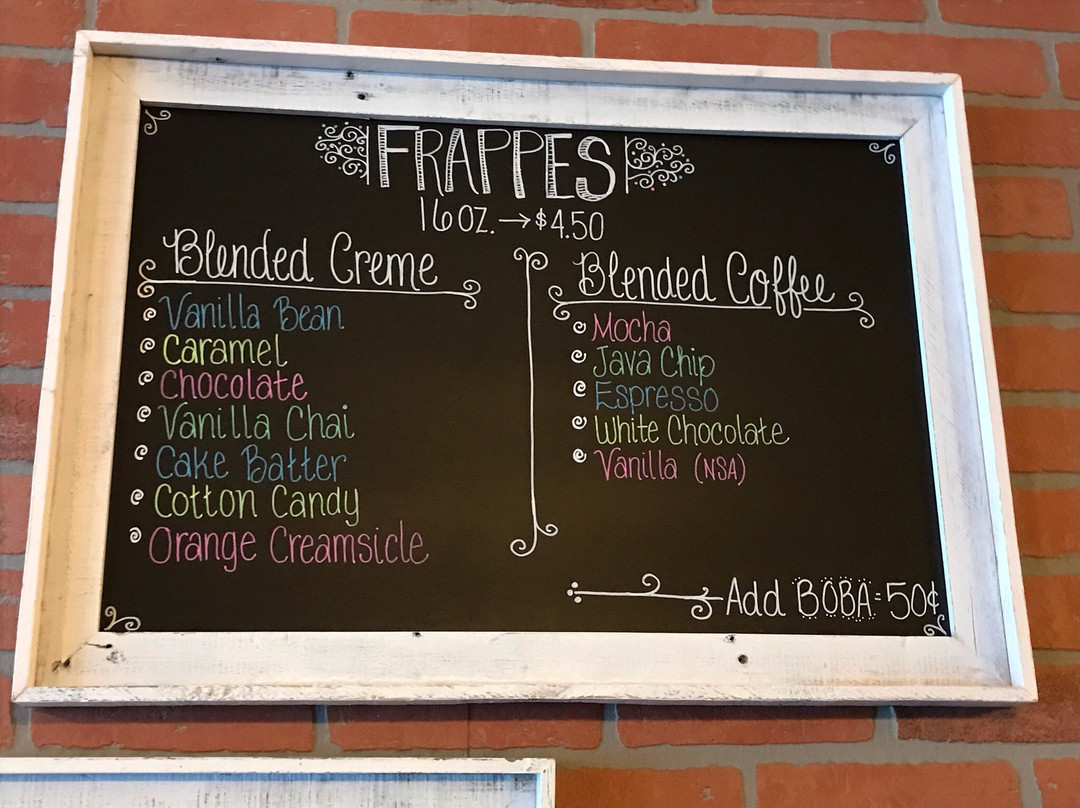 FRAPPES
16 OZ. → $4.50
Blended Creme
Vanilla Bean
Caramel
Chocolate
Vanilla Chai
Cake Batter
Cotton Candy
Orange Creamsicle
Blended Coffee
Mocha
Java Chip
Espresso
White Chocolate
Vanilla (NSA)
Add BOBA = 50¢